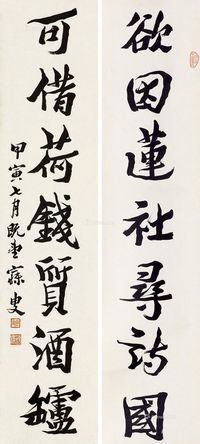 欲因蓮社尋詩國
可借荷錢質酒罏
甲寅七月既望